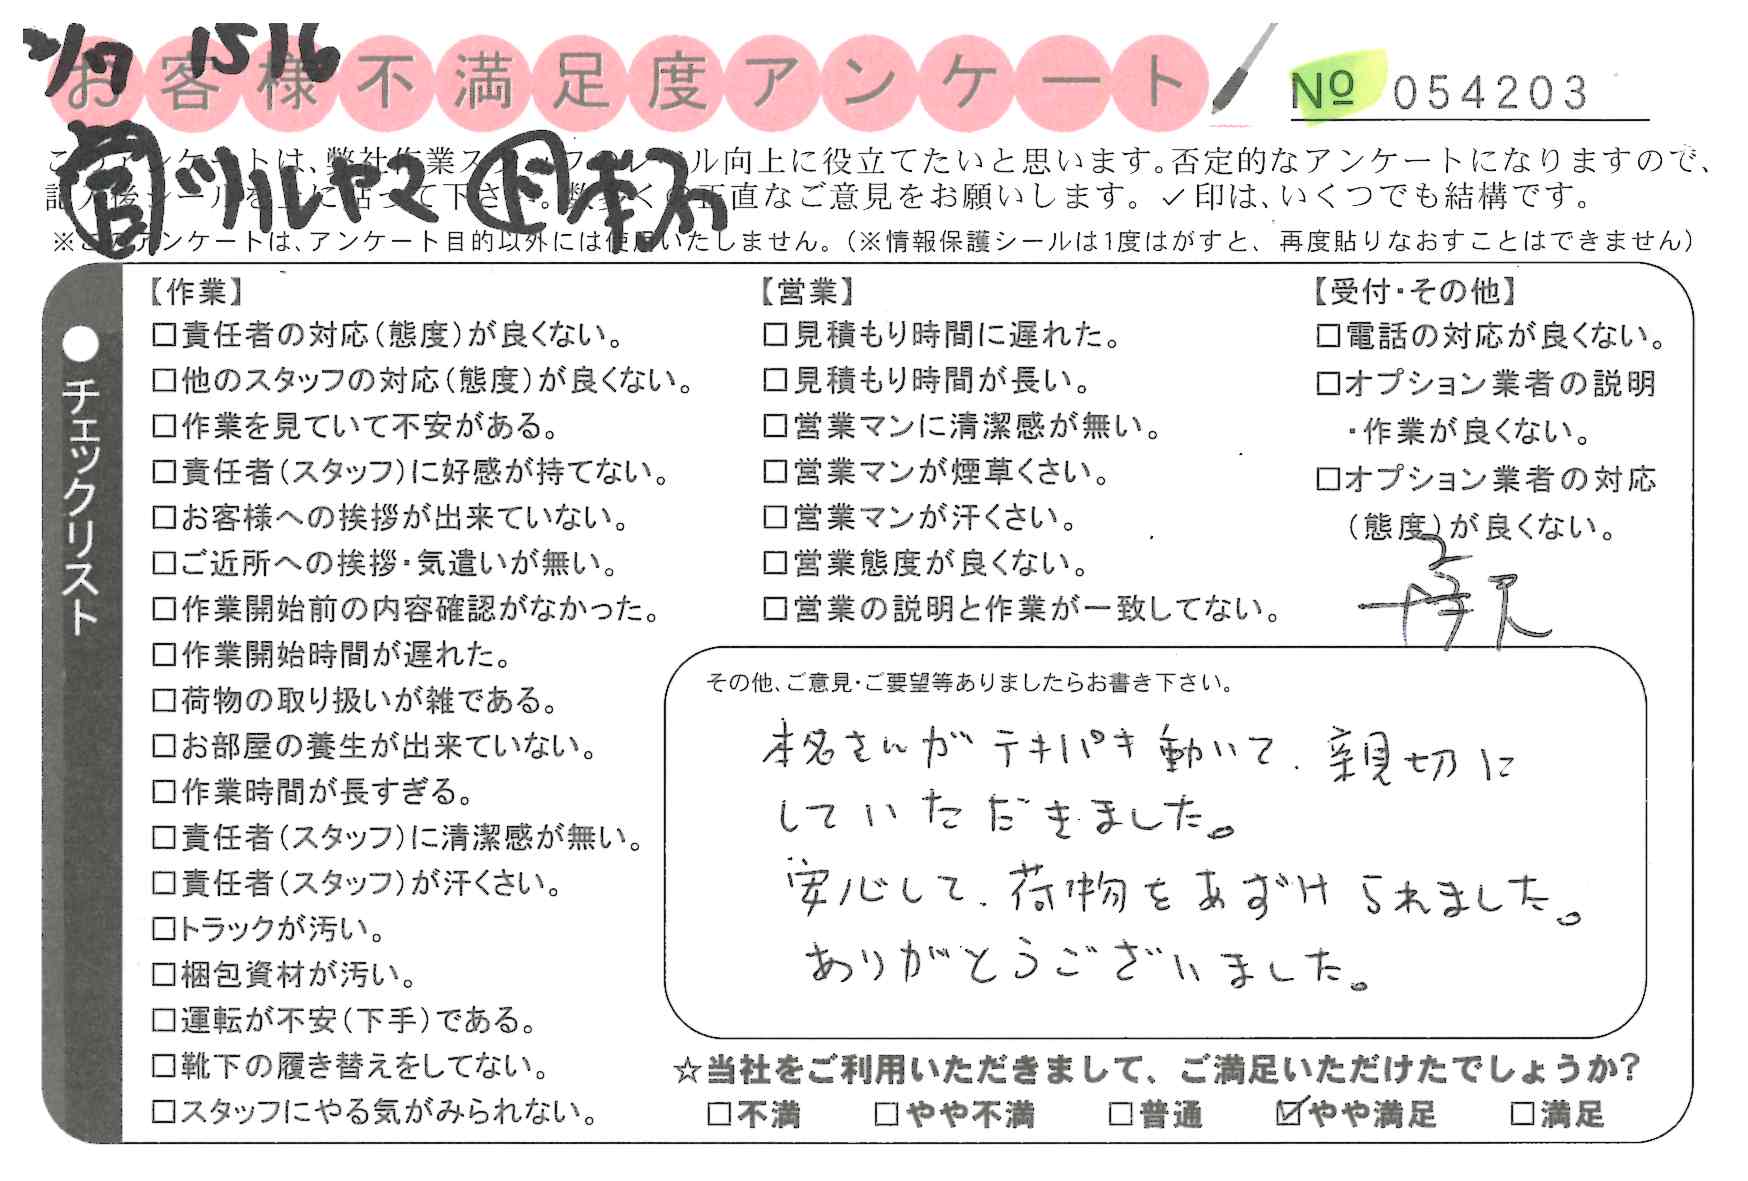 2/7 1516
お客様不満足度アンケート
№ 054203
このアンケートは、弊社作業スタッフのレベル向上に役立てたいと思います。否定的なアンケートになりますので、
記入後シールを上に貼って下さい。数多くの正直なご意見をお願いします。✓印は、いくつでも結構です。
営 ツルヤマ
※このアンケートは、アンケート目的以外には使用いたしません。(※情報保護シールは1度はがすと、再度貼りなおすことはできません)
●チェックリスト
【作業】
□責任者の対応(態度)が良くない。
□他のスタッフの対応(態度)が良くない。
□作業を見ていて不安がある。
□責任者(スタッフ)に好感が持てない。
□お客様への挨拶が出来ていない。
□ご近所への挨拶・気遣いが無い。
□作業開始前の内容確認がなかった。
□作業開始時間が遅れた。
□荷物の取り扱いが雑である。
□お部屋の養生が出来ていない。
□作業時間が長すぎる。
□責任者(スタッフ)に清潔感が無い。
□責任者(スタッフ)が汗くさい。
□トラックが汚い。
□梱包資材が汚い。
□運転が不安(下手)である。
□靴下の履き替えをしてない。
□スタッフにやる気がみられない。
【営業】
□見積もり時間に遅れた。
□見積もり時間が長い。
□営業マンに清潔感が無い。
□営業マンが煙草くさい。
□営業マンが汗くさい。
□営業態度が良くない。
□営業の説明と作業が一致してない。
【受付・その他】
□電話の対応が良くない。
□オプション業者の説明
・作業が良くない。
□オプション業者の対応
(態度)が良くない。
その他、ご意見・ご要望等ありましたらお書き下さい。
本名さんがテキパキ動いて、親切に
していただきました。
安心して、荷物をあずけられました。
ありがとうございました。
☆当社をご利用いただきまして、ご満足いただけたでしょうか?
□不満 □やや不満 □普通 ☑やや満足 □満足